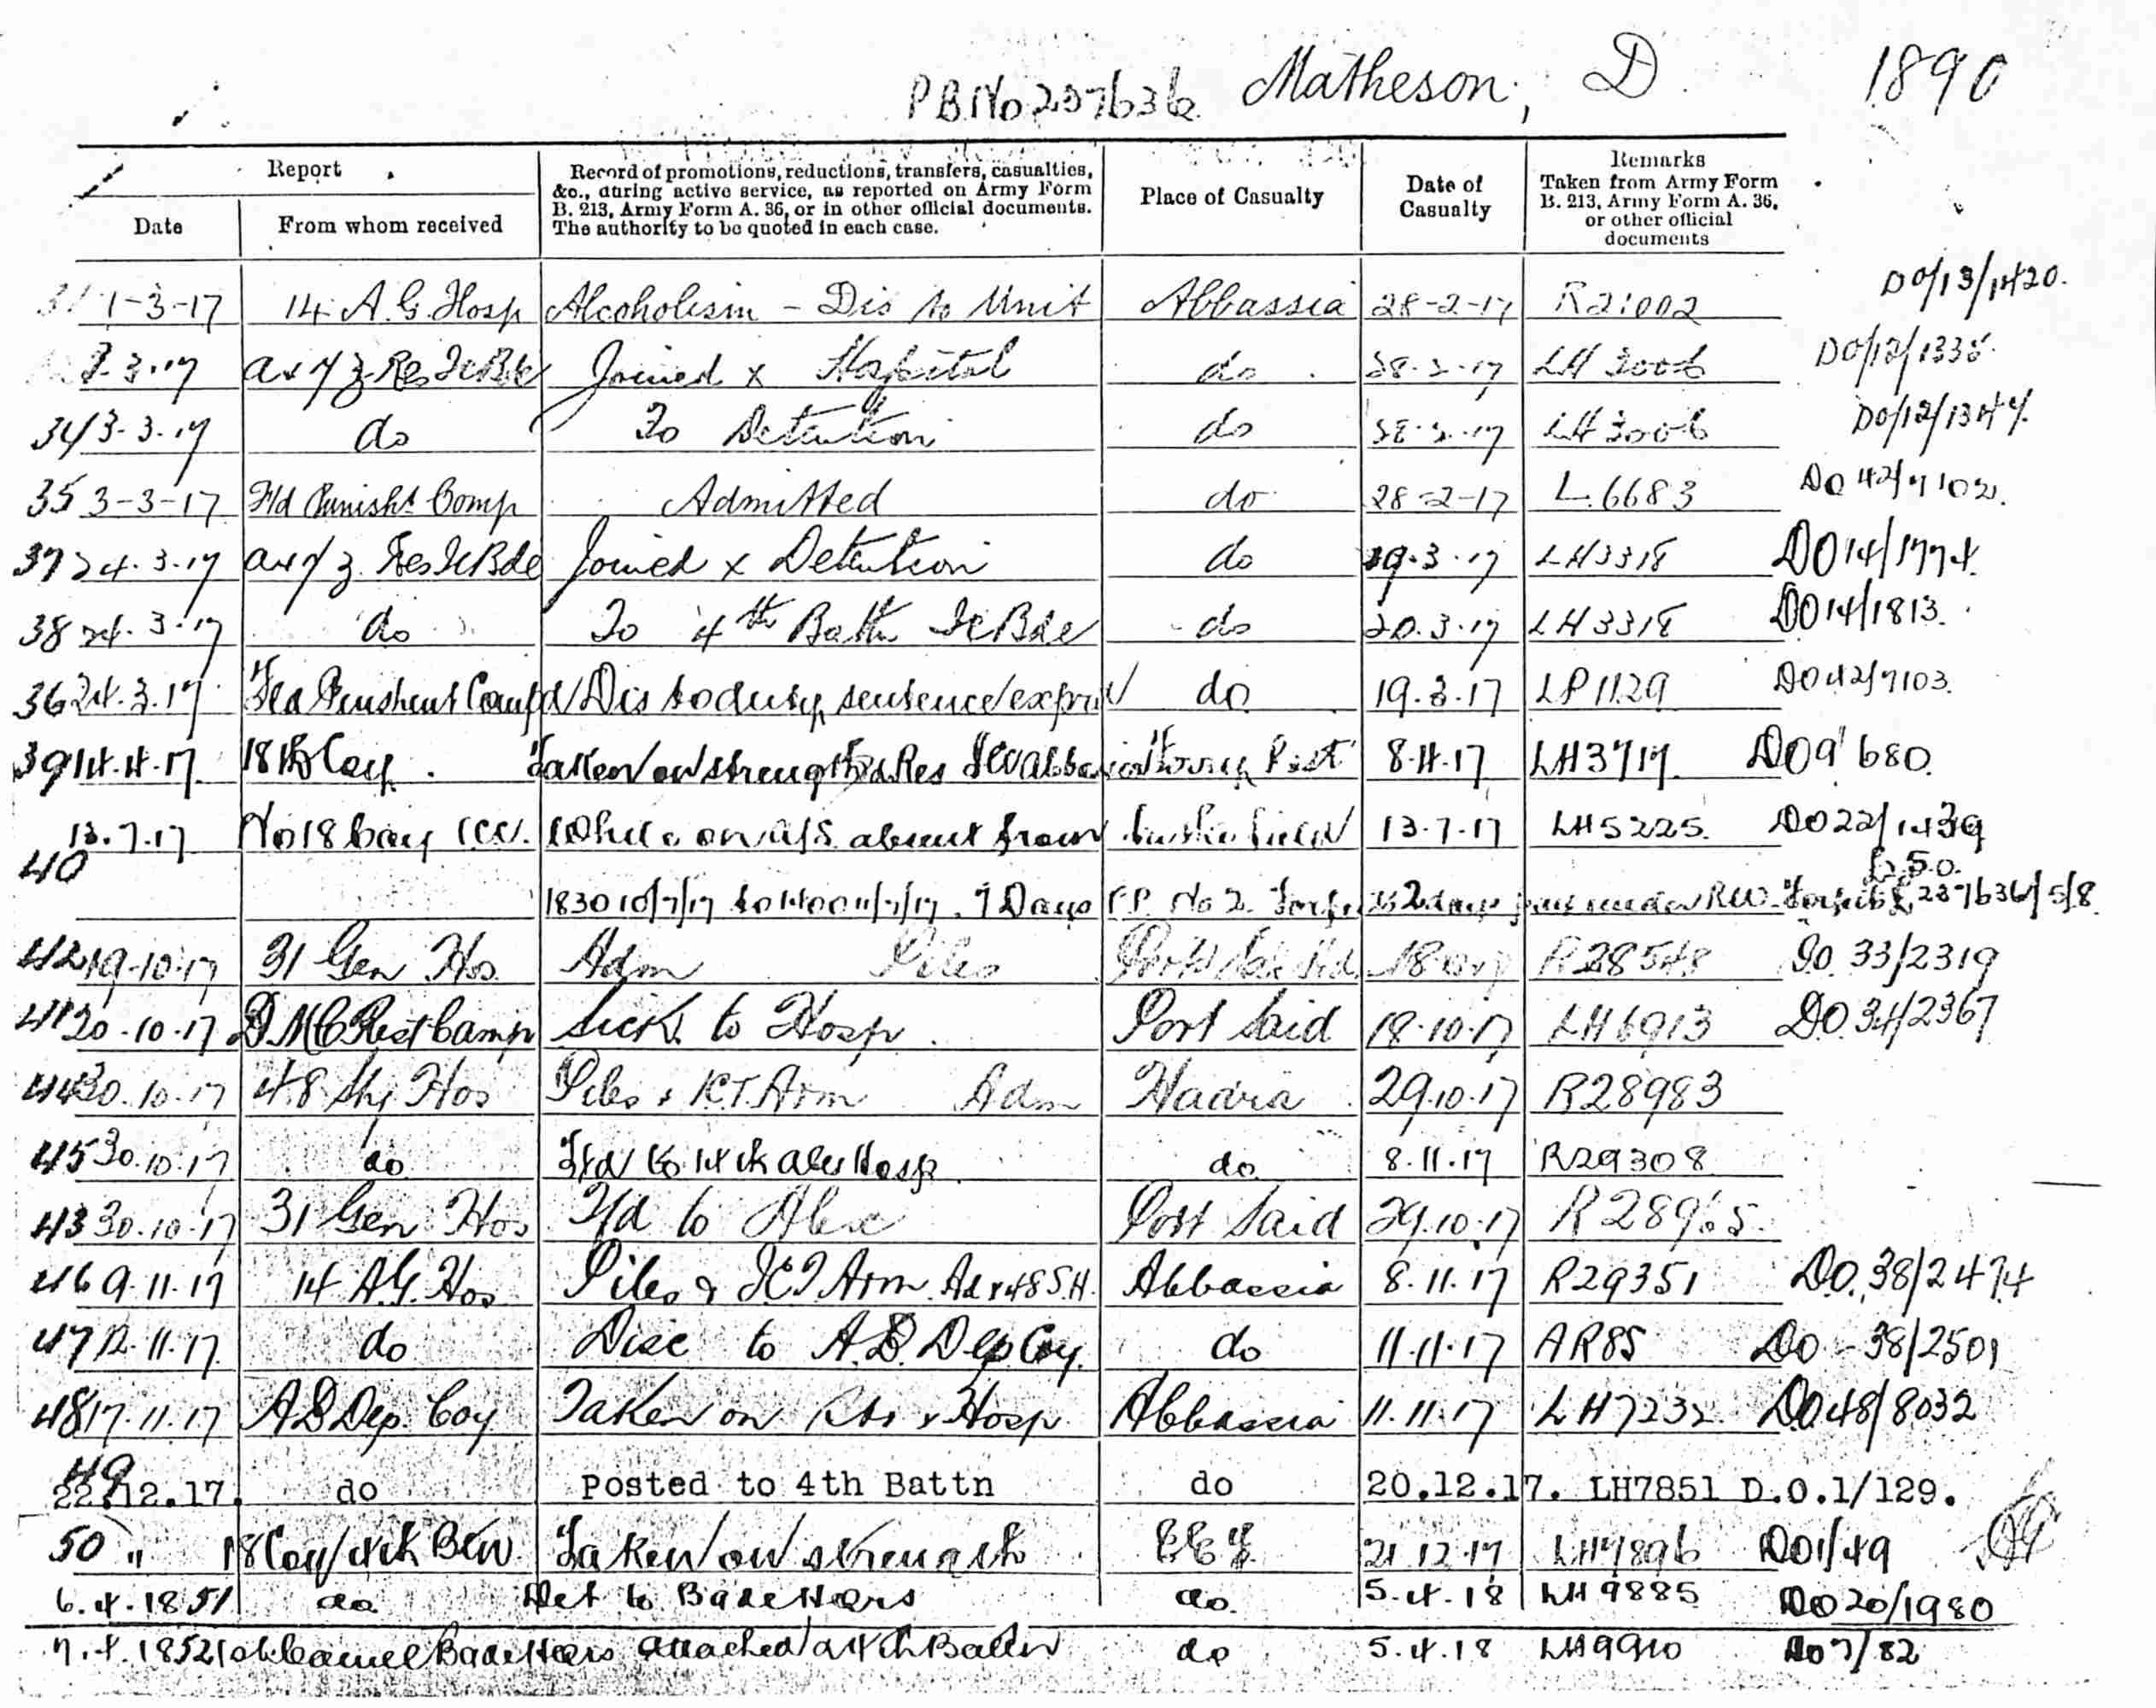 PB No 207636 Matheson, D 1890
Report
Record of promotions, reductions, transfers, casualties, &c., during active service, as reported on Army Form B. 213, Army Form A. 36, or in other official documents. The authority to be quoted in each case.
Place of Casualty
Date of Casualty
Remarks Taken from Army Form B. 213, Army Form A. 36, or other official documents
Date
From whom received
1-3-17 14 A.G. Hosp Alcoholism - Dis to Unit Abbassia 28-2-17 R21002 DO/13/1420.
3.3.17 Joined x Hospital do 28.2.17 LH 3006 DO/12/1335.
34 3.3.17 do To Detention do 28.2.17 LH 3006 DO/12/1344.
35 3-3-17 F/d Punisht Comp Admitted do 28-2-17 L.6683 DO 42/7102.
37 24.3.17 Joined x Detention do 19.3.17 LH3318 DO14/1774.
38 24.3.17 do To 4th Battn IcBde do 20.3.17 LH3318 DO14/1813.
36 24.3.17 Dis to duty, sentence do 19.3.17 LP1129 DO42/7103.
39 14.4.17 18th Coy. Taken on strength Post 8.4.17 LH3717 DO9 680.
13.7.17 No 18 Coy ICC. While on A/S absent from 13.7.17 LH5225. DO22/1439
40 B.50.
1830 10/7/17 to 1400 11/7/17. 7 Days F.P. No 2. 2 days pay under RW. 237636/5/8.
42 19-10-17 31 Gen Hos. Adm Piles Port Said R28548 DO.33/2319
41 20.10.17 D.M.C Rest Camp Sick to Hosp. Port Said 18.10.17 LH6913 DO.34/2367
44 30.10.17 48 Sty Hos Piles & Arm Adm Hadra 29.10.17 R28983
45 30.10.17 do Tfd to 14th Hosp. do 8.11.17 R29308
43 30.10.17 31 Gen Hos T/d to Alex Port Said 29.10.17
46 9.11.17 14 A.G. Hos Piles & Arm. Ad x 48 S.H. Abbassia 8.11.17 R29351 DO.38/2474
47 12.11.17. do Disc to A.D. Dep Coy. do 11.11.17 AR85 DO - 38/2501
48 17.11.17 AD Dep. Coy Taken on Str x Hosp. Abbassia 11.11.17 LH7232 DO48/8032
49
22.12.17. do Posted to 4th Battn do 20.12.17. LH7851 D.O.1/129.
50 " 18 Coy 4th Btn Taken on strength 21.12.17 LH7896 DO1/49
6.4.18 51 do Det to Base Hqrs do. 5.4.18 LH 9885 DO20/1980
7.4.18 52 Camel Base Hqrs attached 4th Battn do 5.4.18 LH9910 DO7/82